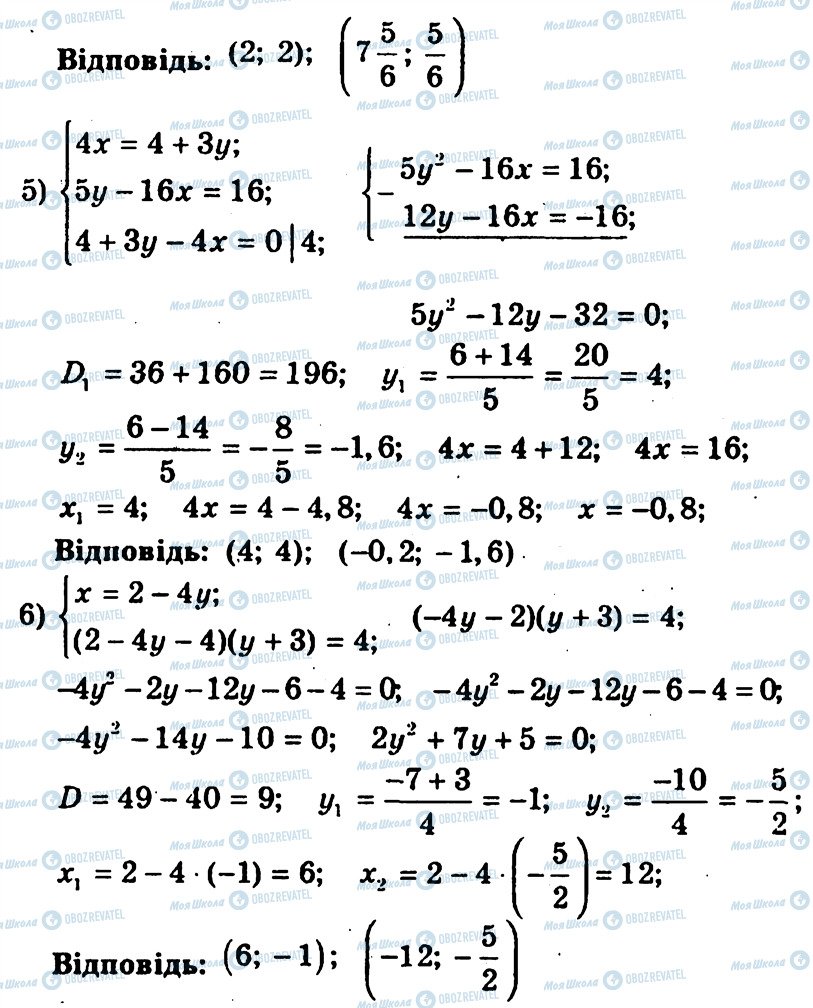 Відповідь: (2; 2); (7 5/6; 5/6)
5) { 4x = 4 + 3y; 5y − 16x = 16; 4 + 3y − 4x = 0 | 4;
{ − 5y² − 16x = 16; 12y − 16x = −16;
5y² − 12y − 32 = 0;
D₁ = 36 + 160 = 196; y₁ = (6 + 14)/5 = 20/5 = 4;
y₂ = (6 − 14)/5 = −8/5 = −1,6; 4x = 4 + 12; 4x = 16;
x₁ = 4; 4x = 4 − 4,8; 4x = −0,8; x = −0,8;
Відповідь: (4; 4); (−0,2; −1,6)
6) { x = 2 − 4y; (2 − 4y − 4)(y + 3) = 4; (−4y − 2)(y + 3) = 4;
−4y² − 2y − 12y − 6 − 4 = 0; −4y² − 2y − 12y − 6 − 4 = 0;
−4y² − 14y − 10 = 0; 2y² + 7y + 5 = 0;
D = 49 − 40 = 9; y₁ = (−7 + 3)/4 = −1; y₂ = −10/4 = −5/2;
x₁ = 2 − 4 · (−1) = 6; x₂ = 2 − 4 · (−5/2) = 12;
Відповідь: (6; −1); (−12; −5/2)
Моя Школа OBOZREVATEL